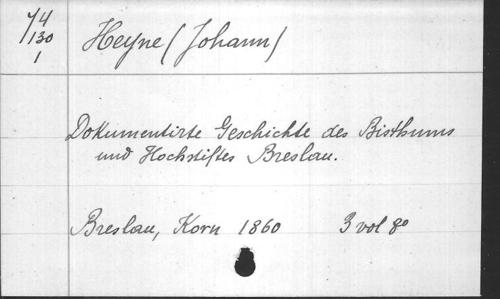 Y4
130
1
Heyne (Johann)
Dokumentirte Geschichte des Bisthums
und Hochstiftes Breslau.
Breslau, Korn 1860 3 vol 8°